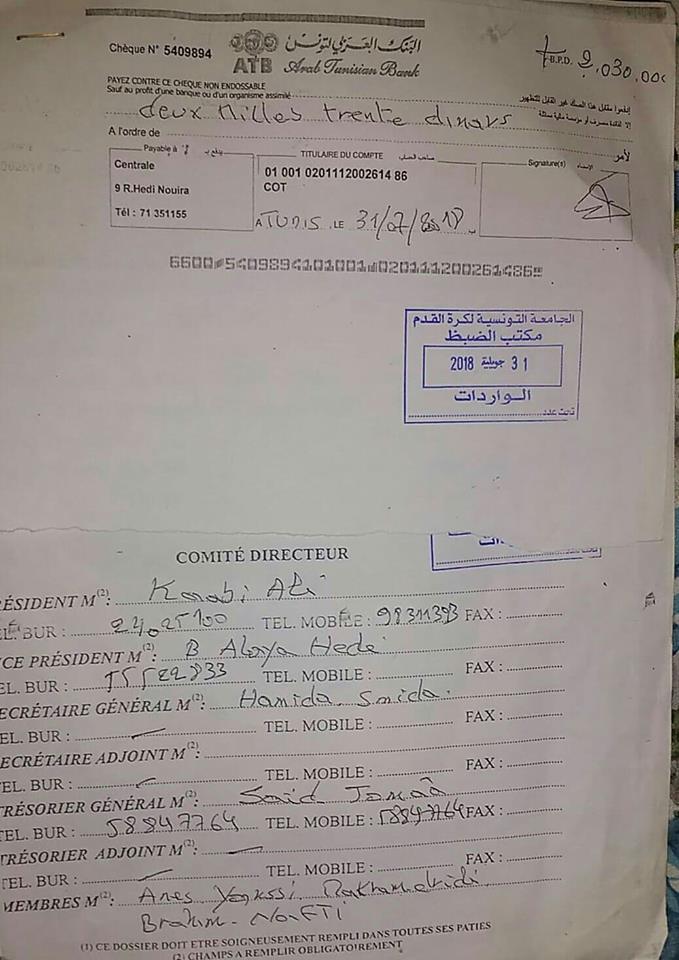 Chèque N° 5409894
البنك العربي لتونس
ATB Arab Tunisian Bank
B.P.D. 2.030,000
PAYEZ CONTRE CE CHEQUE NON ENDOSSABLE
Sauf au profit d'une banque ou d'un organisme assimilé
إدفعوا مقابل هذا الصك غير القابل للتظهير
إلا لفائدة مصرف أو مؤسسة مالية مماثلة
deux milles trente dinars
A l'ordre de
لأمر
Payable à
TITULAIRE DU COMPTE صاحب الحساب
Signature(s) الإمضاء
Centrale
01 001 0201112002614 86
COT
9 R.Hedi Nouira
Tél : 71 351155
A TUNIS LE 31/07/2018
الجامعة التونسية لكرة القدم
مكتب الضبط
31 جويلية 2018
الواردات
تحت عدد
COMITÉ DIRECTEUR
RÉSIDENT M(2): Karabi Ali
TEL. MOBILE : 98311393 FAX :
CE PRÉSIDENT M(2): B Alaya Hedi
EL. BUR : TEL. MOBILE : FAX :
ECRÉTAIRE GÉNÉRAL M(2): Hamida Smida
EL. BUR : TEL. MOBILE : FAX :
ECRÉTAIRE ADJOINT M(2):
EL. BUR : TEL. MOBILE : FAX :
TRÉSORIER GÉNÉRAL M(2): Said Jomaâ
TEL. BUR : 58847764 TEL. MOBILE : 58847764 FAX :
TRÉSORIER ADJOINT M(2):
TEL. BUR : TEL. MOBILE : FAX :
MEMBRES M(2): Anes
Brahim - NAFTI
(1) CE DOSSIER DOIT ETRE SOIGNEUSEMENT REMPLI DANS TOUTES SES PATIES
(2) CHAMPS A REMPLIR OBLIGATOIREMENT